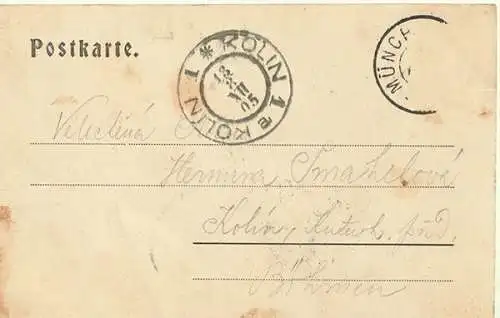 Postkarte.
* KOLIN 1 * KOLIN 1
13
XII
05
MÜNCH
Velectená
Hermina Smahelová
Kolín,
Böhmen